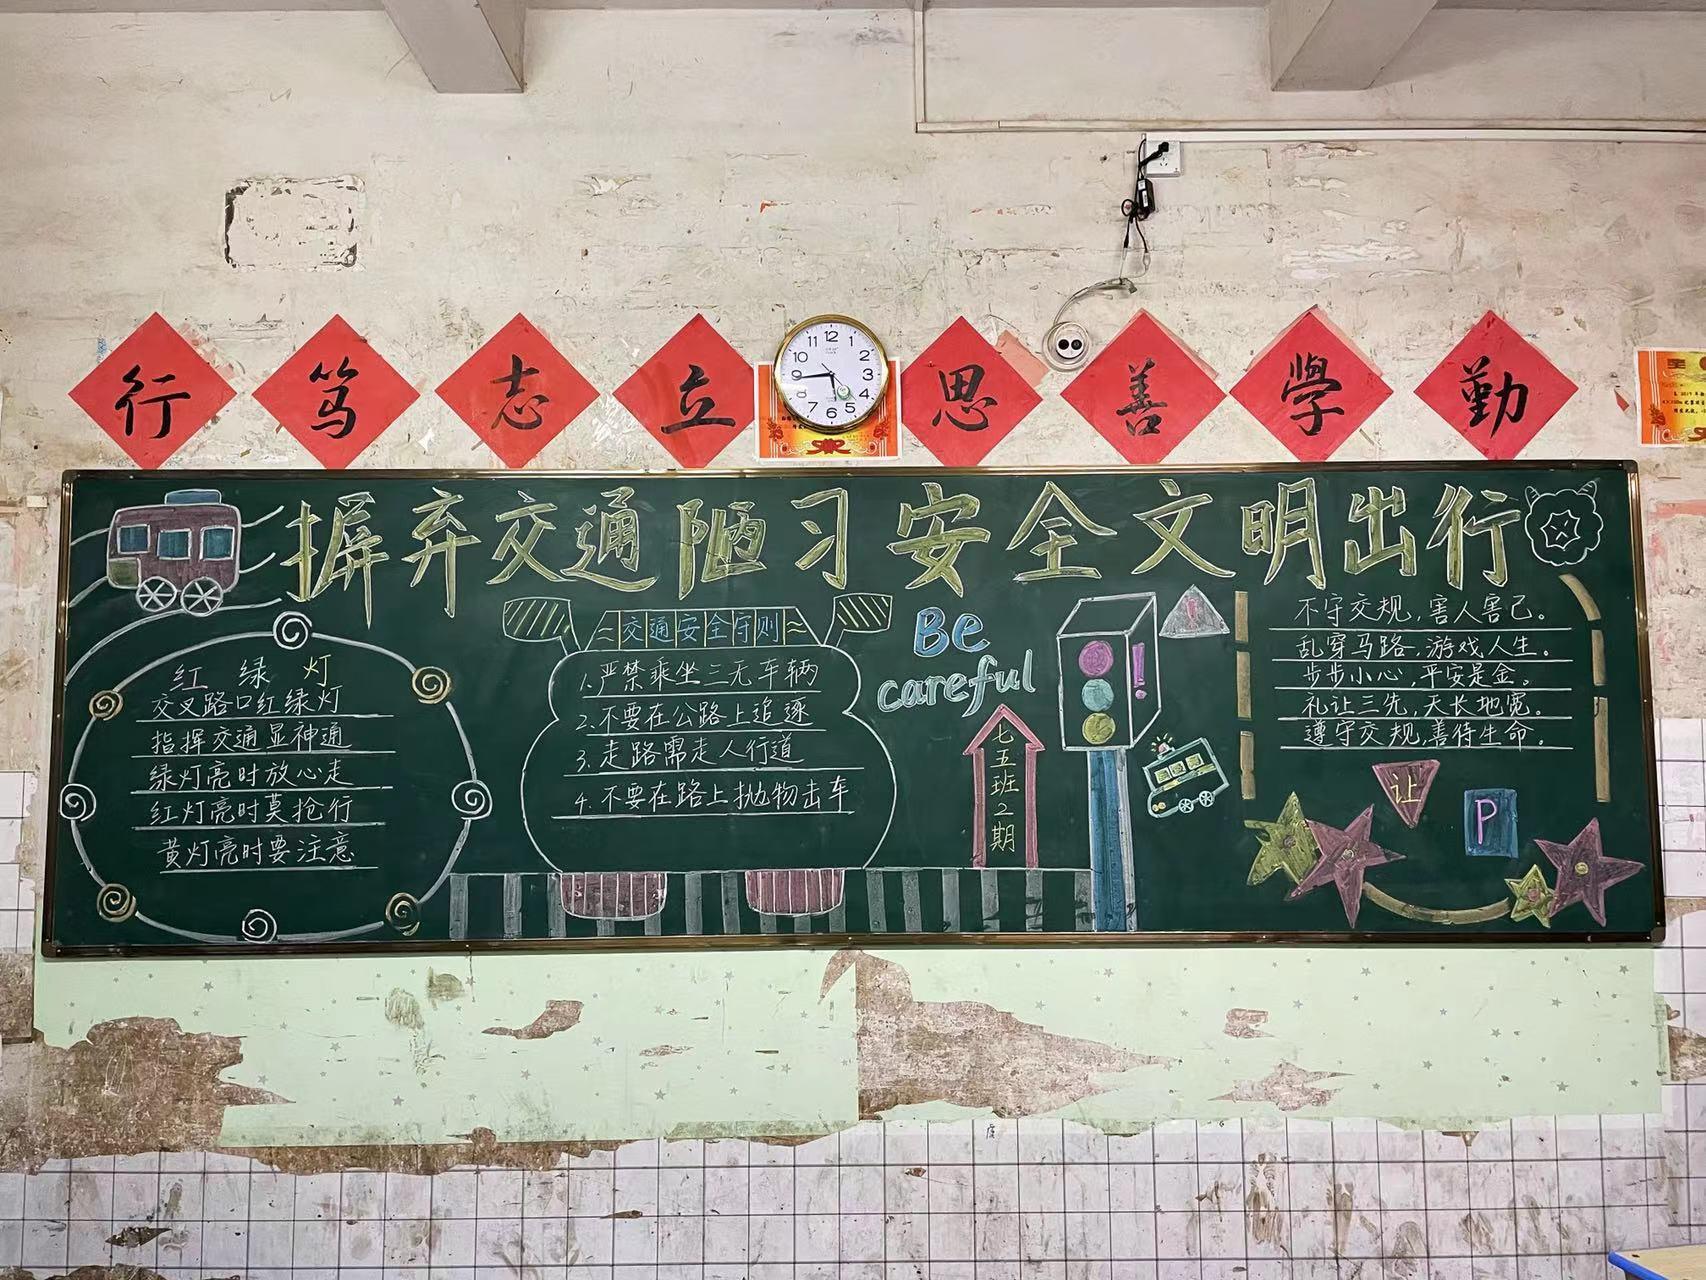 行 篤 志 立 思 善 學 勤
12 1 2 3 4 5 6 7 8 9 10 11
摒弃交通陋习安全文明出行
红 绿 灯
交叉路口红绿灯
指挥交通显神通
绿灯亮时放心走
红灯亮时莫抢行
黄灯亮时要注意
交通安全守则
1.严禁乘坐三无车辆
2.不要在公路上追逐
3.走路需走人行道
4.不要在路上抛物击车
Be
careful
七五班2期
!
!
不守交规,害人害己。
乱穿马路,游戏人生。
步步小心,平安是金。
礼让三先,天长地宽。
遵守交规,善待生命。
让
P